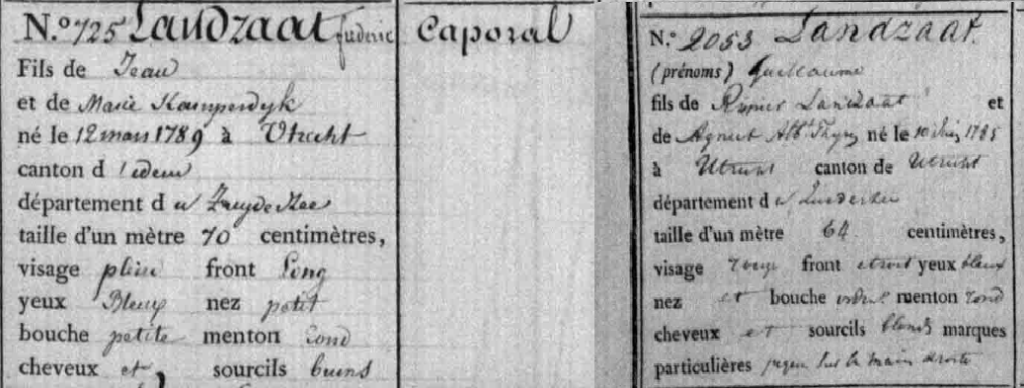 N.° 725 Landzaat frederic
Fils de Jean
et de Marie Kamperdyk
né le 12 mars 1789 à Utrecht
canton d idem
département du Zuyderzee
taille d'un mètre 70 centimètres,
visage plein front Long
yeux Bleus nez petit
bouche petite menton rond
cheveux et sourcils bruns
Caporal
N.° 2053 Landzaat.
(prénoms) Guillaume
fils de Landzaat et
de né le 10 1785
à Utrecht canton de Utrecht
département du
taille d'un mètre 64 centimètres,
visage rouge front étroit yeux bleux
nez et bouche menton rond
cheveux et sourcils blonds marques
particulières sur la main droite